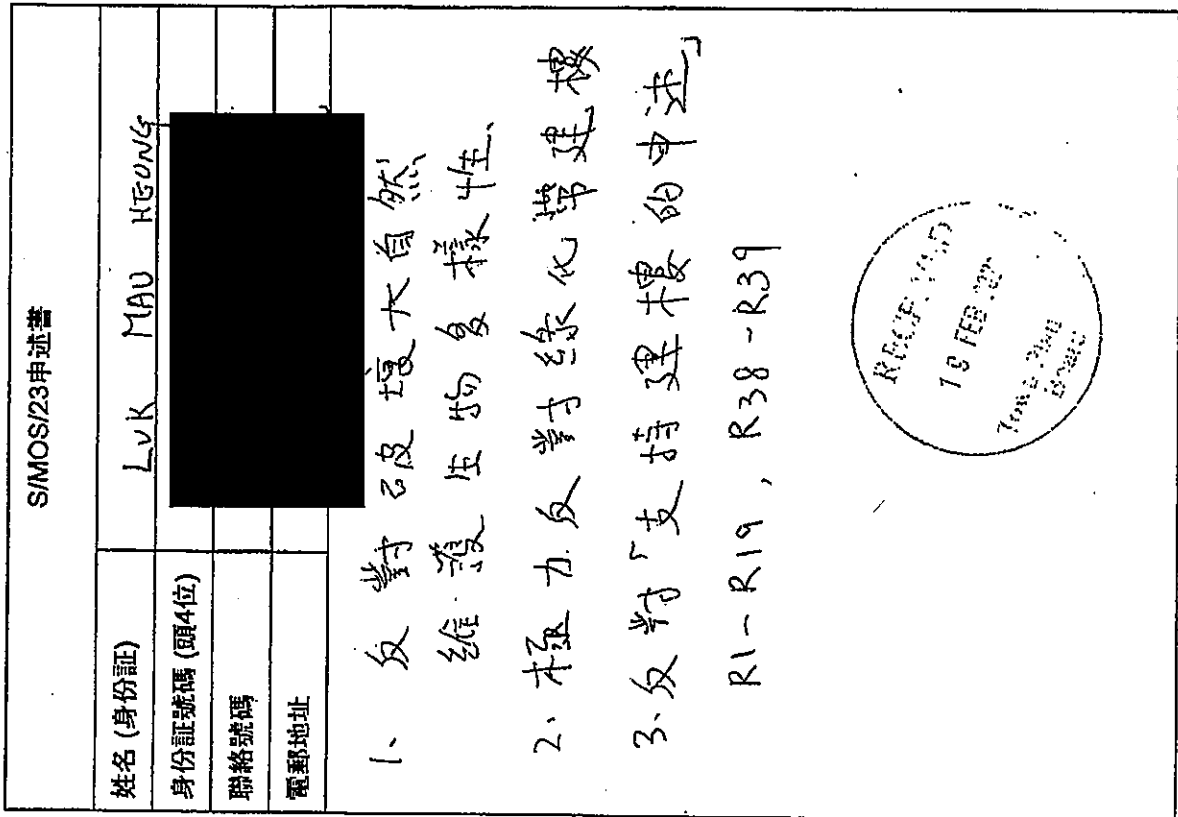 S/MOS/23申述書
姓名 (身份証) LUK MAU HEUNG
身份証號碼 (頭4位)
聯絡號碼
電郵地址
1、反對破壞大自然
維護生物多樣性、
2、極力反對綠化帶建樓
3、反對「支持建樓的申述」
R1-R19, R38-R39
RECEIVED
18 FEB
Town Plan
Board